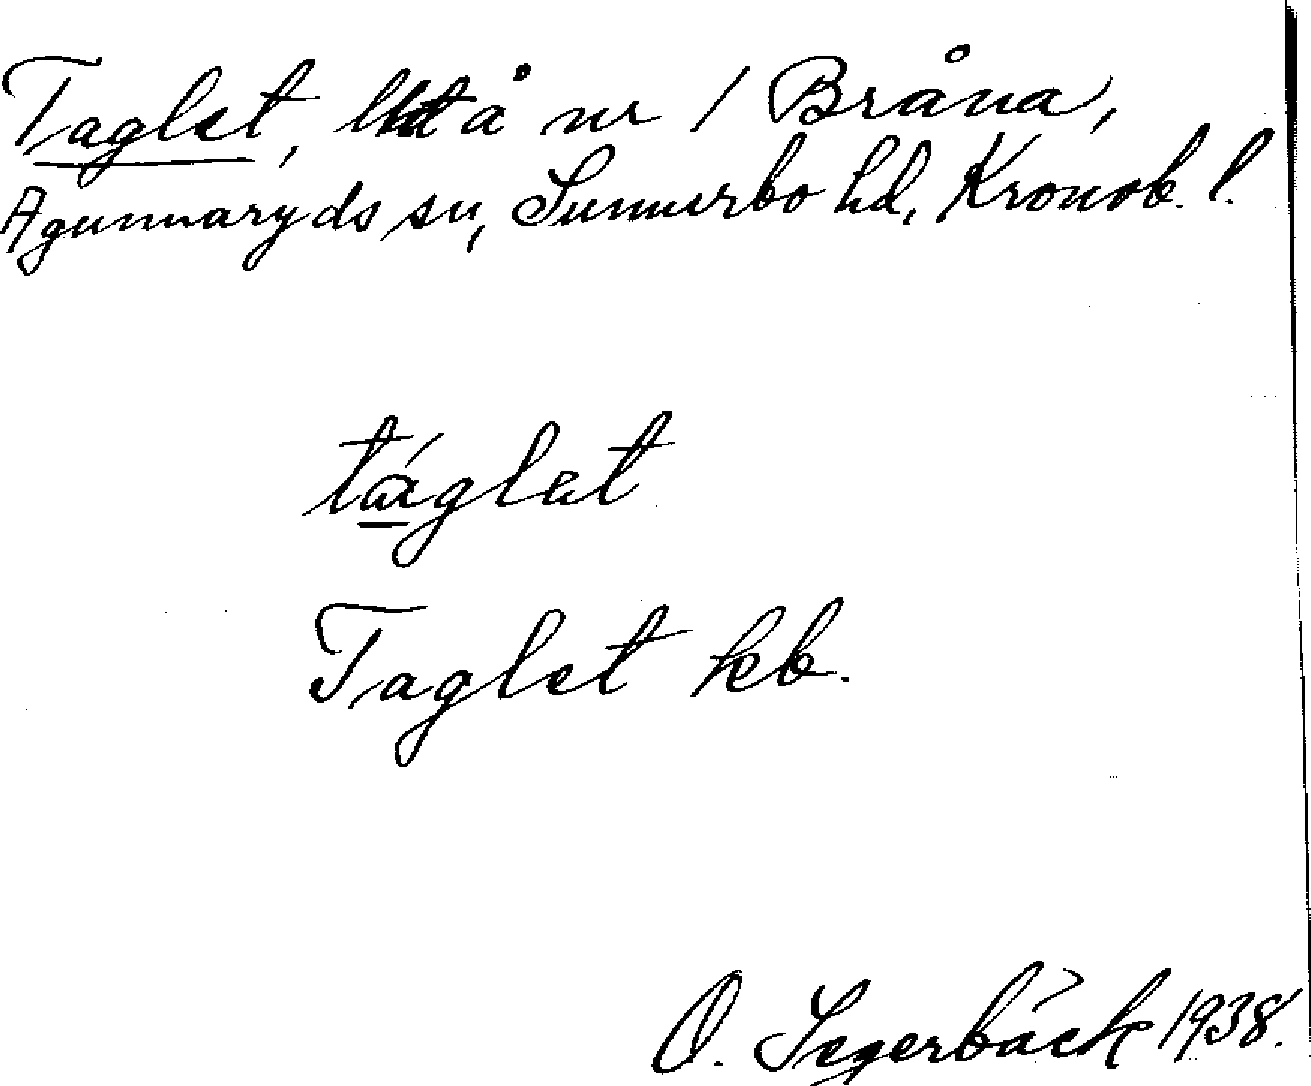 Taglet, lht å nr 1 Bråna,
Agunnaryds sn, Sunnerbo hd, Kronob. l.
táglat
Taglet kb.
O. Segerbäck 1938.